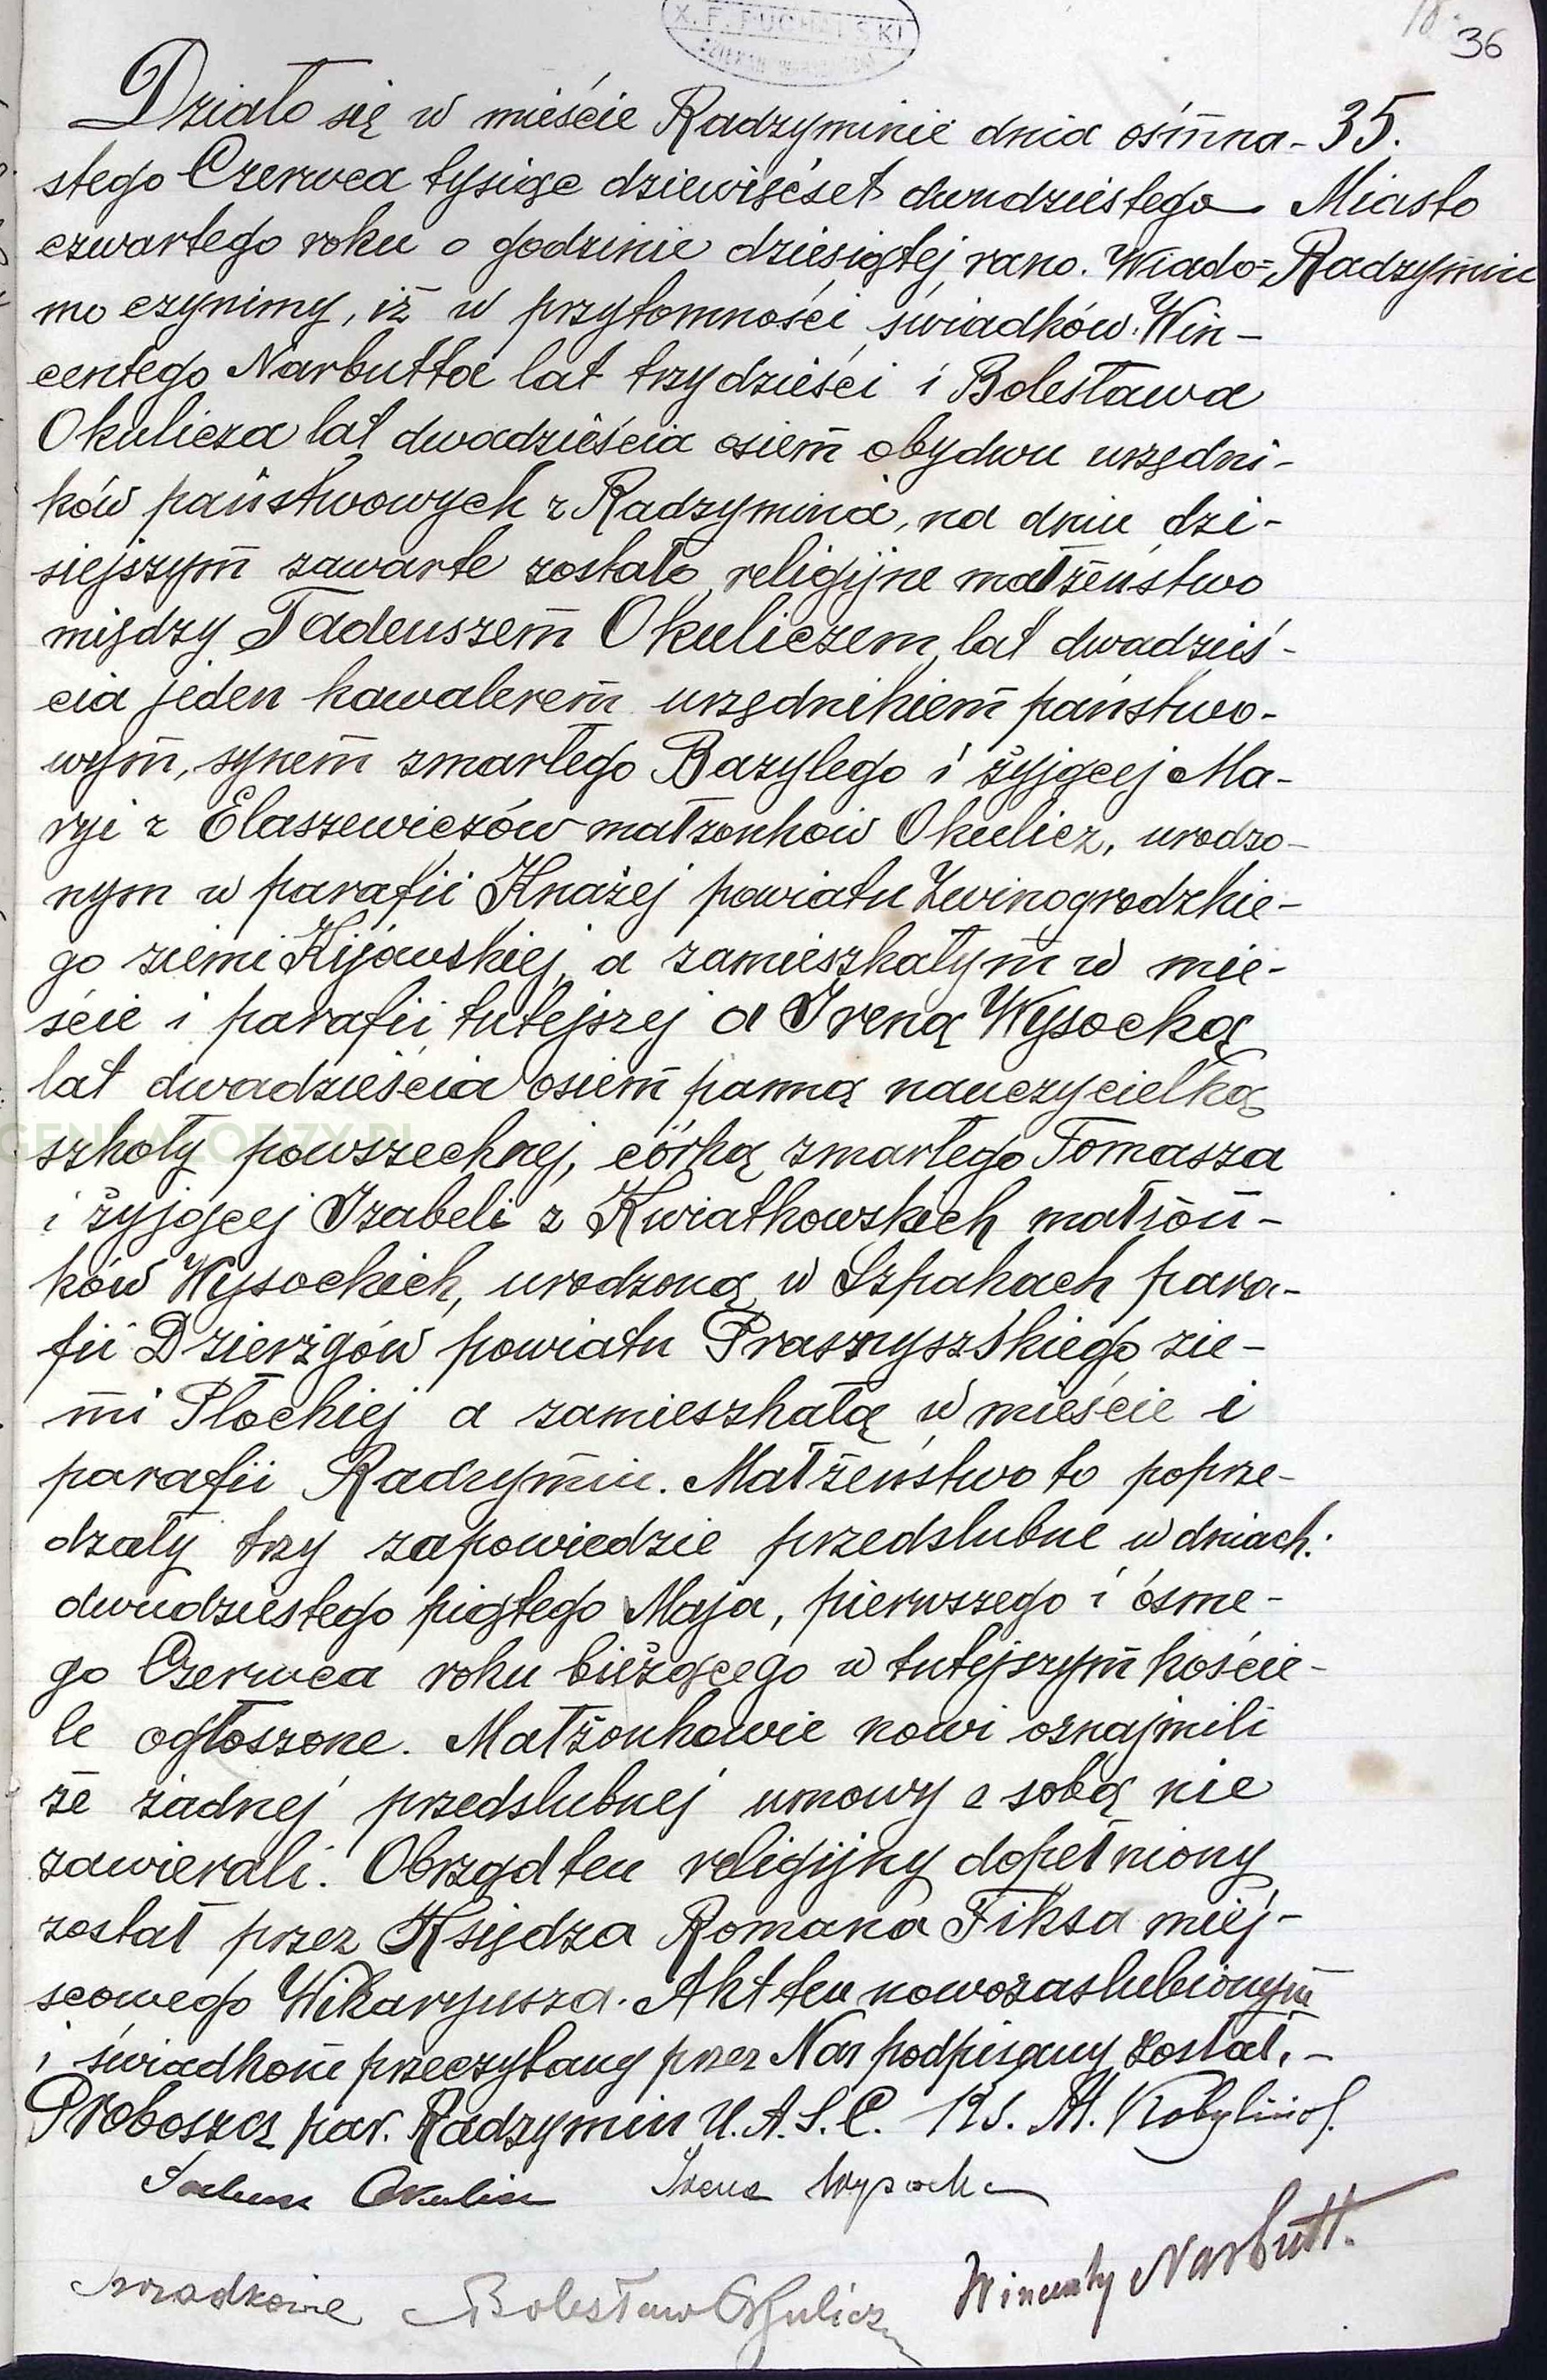 36
X. F. PUCHALSKI
Działo się w mieście Radzyminie dnia ośmna-
35.
stego Czerwca tysiąc dziewięćset dwudziestego
Miasto
czwartego roku o godzinie dziesiątej rano. Wiado=
Radzymin
mo czynimy, iż w przytomności świadków: Win-
centego Narbutta lat trzydzieści i Bolesława
Okulicza lat dwadzieścia osiem obydwu urzędni-
ków państwowych z Radzymina, na dniu dzi-
siejszym zawarte zostało religijne małżeństwo
między Tadeuszem Okuliczem lat dwadzieś-
cia jeden kawalerem urzędnikiem państwo-
wym, synem zmarłego Bazylego i żyjącej Ma-
ryi z Elaszewiczów małżonków Okulicz, urodzo-
nym w parafii Knażej powiatu Zwinogrodzkie-
go ziemi Kijowskiej, a zamieszkałym w mie-
ście i parafii tutejszej a Ireną Wysocką
lat dwadzieścia osiem panną nauczycielką
szkoły powszechnej, córką zmarłego Tomasza
i żyjącej Izabeli z Kwiatkowskich małżon-
ków Wysockich, urodzoną w Szpakach para-
fii Dzierzgów powiatu Prasnyszskiego zie-
mi Płockiej a zamieszkałą w mieście i
parafii Radzymin. Małżeństwo to poprze-
dzały trzy zapowiedzie przedślubne w dniach:
dwudziestego piątego Maja, pierwszego i ósme-
go Czerwca roku bieżącego w tutejszym koście-
le ogłoszone. Małżonkowie nowi oznajmili
że żadnej przedślubnej umowy z sobą nie
zawierali. Obrząd ten religijny dopełniony
został przez Księdza Romana Fiksa miej-
scowego Wikaryusza. Akt ten nowozaślubionym
i świadkom przeczytany przez Nas podpisany został.-
Proboszcz par. Radzymin U.A.S.C. Ks.
Tadeusz Okulicz Irena Wysocka
Świadkowie Bolesław Okulicz Wincenty Narbutt.